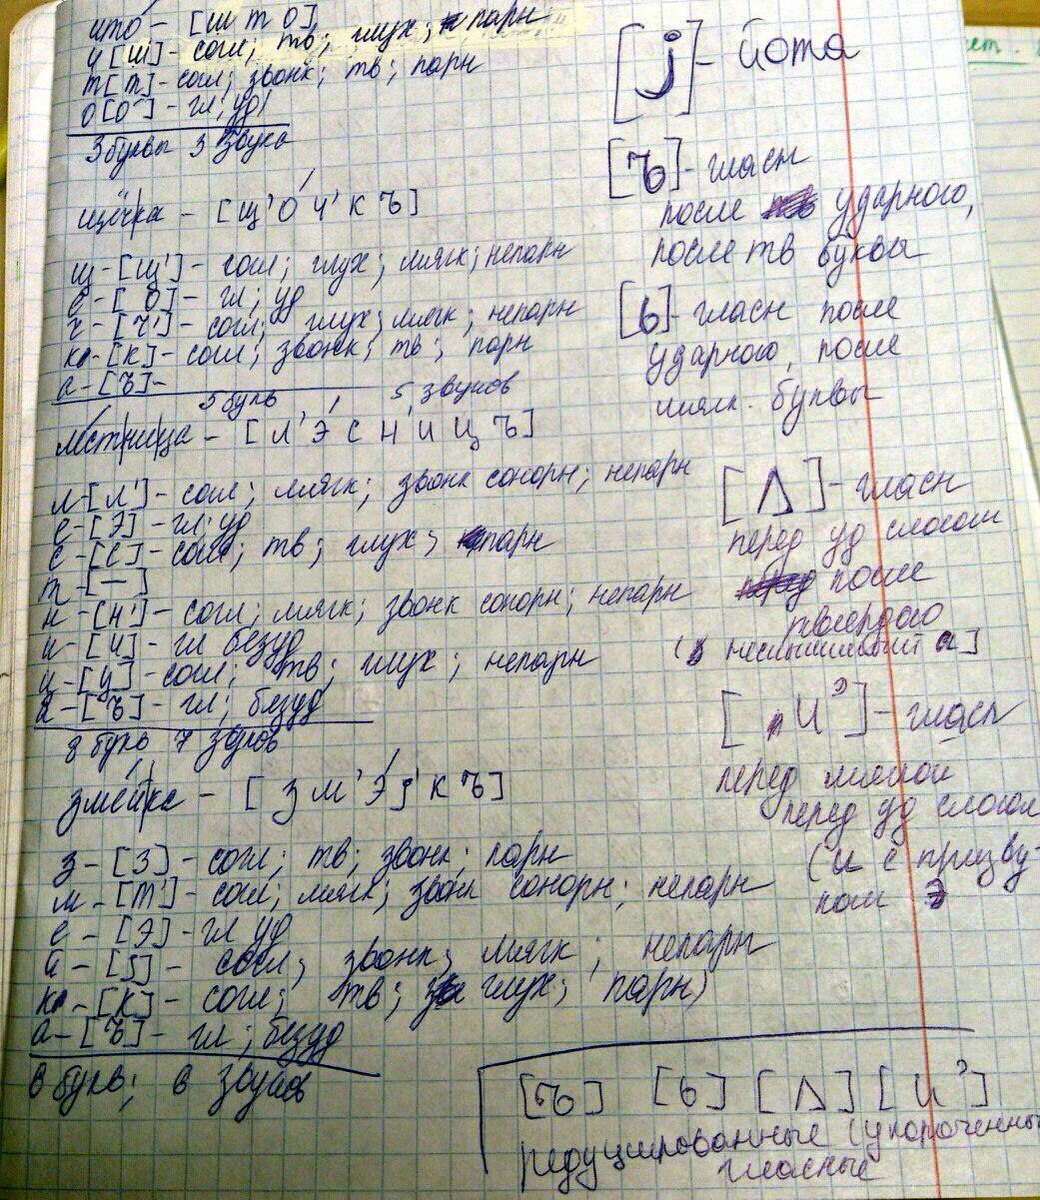 что - [ш т о]
ч [ш] - согл; тв; глух; парн
т [т] - согл; звонк; тв; парн
о [о́] - гл; уд
3 буквы 3 звука
щёчка - [щ' о́ ч' к ъ]
щ - [щ'] - согл; глух; мягк; непарн
ё - [о] - гл; уд
ч - [ч'] - согл; глух; мягк; непарн
к - [к] - согл; звонк; тв; парн
а - [ъ] -
5 букв 5 звуков
лестница - [л' э́ с н' и ц ъ]
л - [л'] - согл; мягк; звонк сонорн; непарн
е - [э] - гл; уд
с - [с] - согл; тв; глух; парн
т - [—]
н - [н'] - согл; мягк; звонк сонорн; непарн
и - [и] - гл безуд
ц - [ц] - согл; тв; глух; непарн
а - [ъ] - гл; безуд
8 букв 7 звуков
змейка - [з м' э́ j' к ъ]
з - [з] - согл; тв; звонк; парн
м - [м'] - согл; мягк; звонк сонорн; непарн
е - [э] - гл уд
й - [j] - согл; звонк; мягк; непарн
к - [к] - согл; тв; глух; парн
а - [ъ] - гл; безуд
6 букв; 6 звуков
[j] - йота
[ъ] - гласн
после ударного,
после тв буквы
[ь] - гласн после
ударного, после
мягк. буквы
[Λ] - гласн
перед уд слогом
после
твердого
( неслышимый а]
[иэ] - гласн
перед мягкой
перед уд слогом
(и с призву-
ком э
[ъ] [ь] [Λ] [иэ]
редуцированные (укороченные
гласные